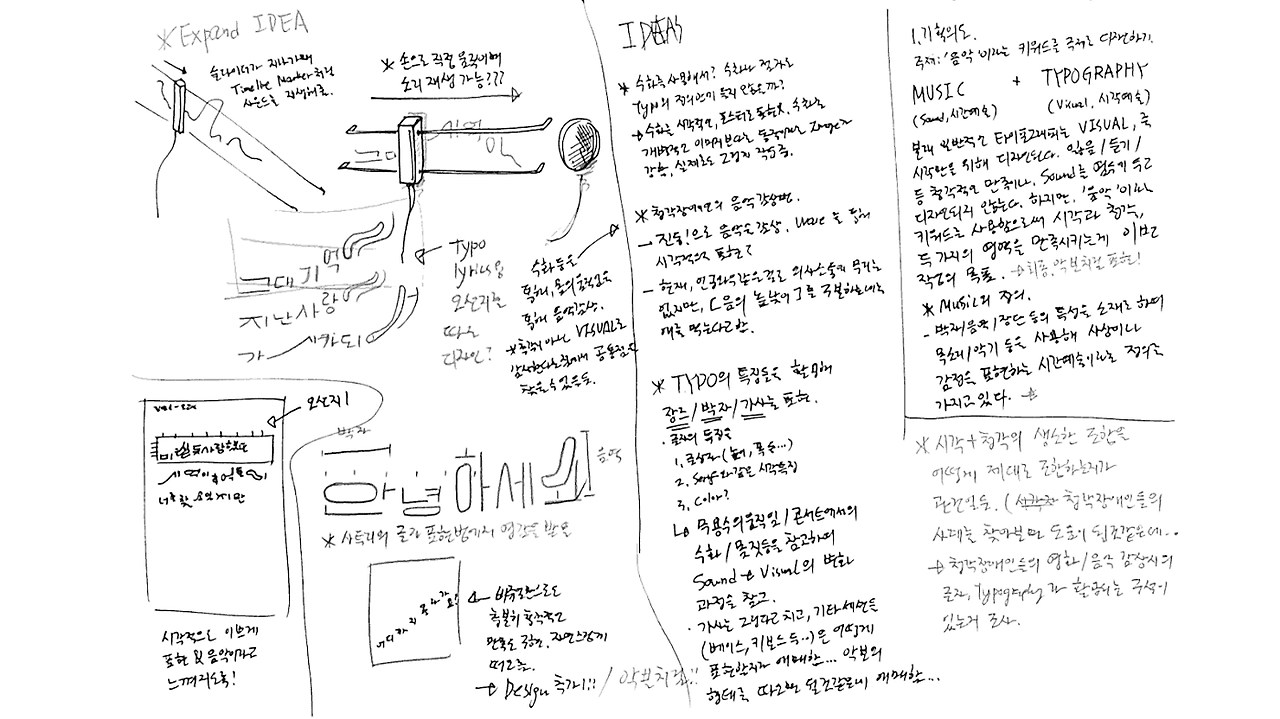 * Expand IDEA
슬라이더가 지나가며
Timeline Marker처럼
사운드를 재생해줌.
* 손으로 직접 움직이며
소리 재생 가능???
그대
기억
그대 기억
지난 사랑
가
Typo
lyrics을
오선지를
따로
디자인?
수화 등을
통해, 손의 움직임으로
통해 음악감상.
* 청각이 아닌 VISUAL로
감상한다는 점에서 공통점을
찾을 수 있을듯.
오선지!
시각적으로 이쁘게
표현 & 음악이라고
느껴지도록!
박자
음역
안녕하세요
* 사투리의 글자 표현법까지 영감을 받음
어디까지 올라가요!
비주얼만으로도
충분히 청각적인
만족도 구현. 자연스럽게
떠오름.
→ Design 추가!!! / 악보처럼!!
IDEAS
* 수화를 사용해서? 수화와 글자로
Typo의 정의만이 들지 않을까?
개방적인
* 청각장애인의 음악감상법.
→ 진동!으로 음악을 감상. Wave를 통해
시각적으로 표현?
- 현재, 인공와우같은 걸로 의사소통의 무리는
없지만, [음의 높낮이]를 구분하는데는
애를 먹는다고 함.
* TYPO의 특징들을 활용해
장르/박자/가사를 표현.
· 글자의 특징을
2. Serif와 같은 시각특징
3. Color?
↳ 무용수의 움직임/콘서트에서의
수화/몸짓등을 참고하여
Sound → Visual의 변화
과정을 참고.
· 가사는 그렇다 치고, 기타세션들
(베이스, 키보드 등..)은 어떻게
표현할지가 애매함... 악보의
형태를 따오면 될것같은데 애매함...
1. 기획의도.
주제: '음악'이라는 키워드를 주제로 디자인하기.
MUSIC + TYPOGRAPHY
(Sound, 시간예술) (Visual, 시각예술)
본래 일반적인 타이포그래피는 VISUAL, 즉
시각만을 위해 디자인된다. 읽음/듣기/
등 청각적인 만족이나, Sound를 염두에 두고
디자인되지 않는다. 하지만, '음악'이라는
키워드를 사용함으로써 시각과 청각,
두 가지의 영역을 만족시키는게 이번
작업의 목표. → 최종, 악보처럼 표현!
* Music의 정의.
- 박자/음색/장단 등의 특성을 소재로 하여
목소리/악기 등을 사용해 사상이나
감정을 표현하는 시간예술이라는 정의를
가지고 있다.
* 시각+청각의 생소한 조합을
어떻게 제대로 조합하는지가
관건일듯. (청각장애인들의
사례를 찾아보면 도움이 될것같은데..
→ 청각장애인들의 영화/음악 감상시의
글자, Typography가 활용되는 주석이
있는지 조사.